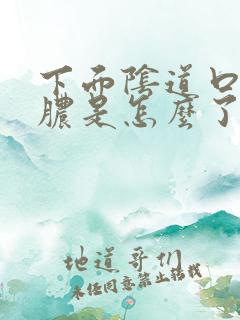 下面陰道口
膿是怎麼了
地道哥们
未经同意禁止转载